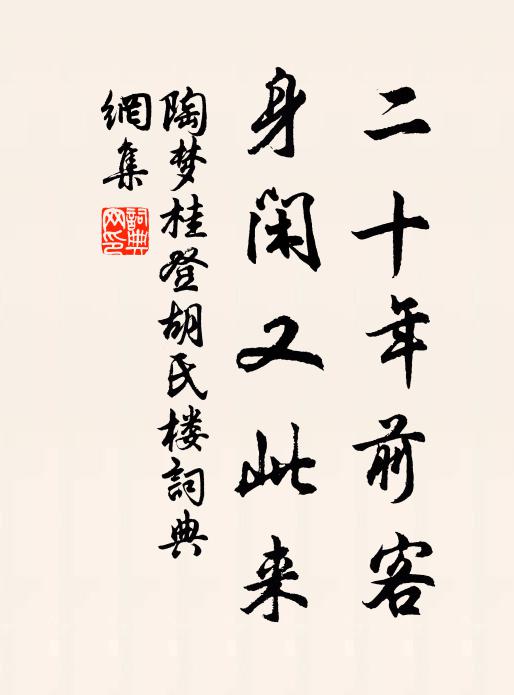 二十年前客
身闲又此来
陶梦桂登胡氏楼詞典
網集
詞典
网印